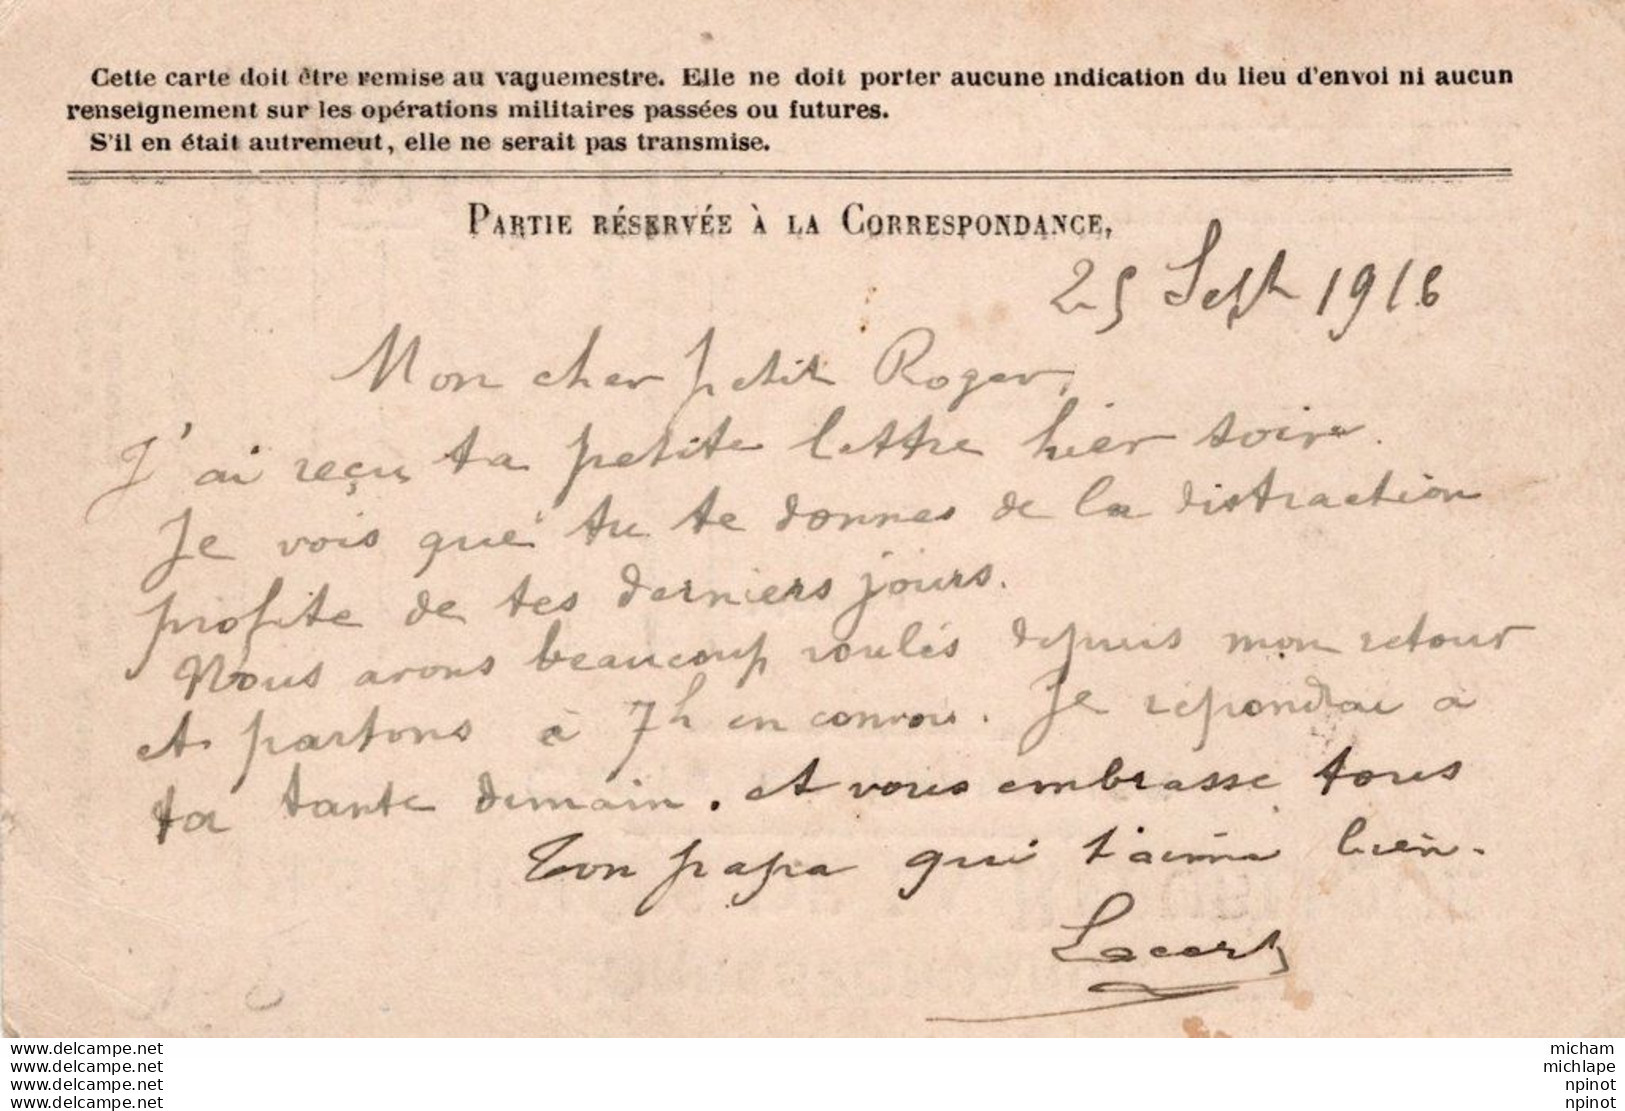 Cette carte doit être remise au vaguemestre. Elle ne doit porter aucune indication du lieu d'envoi ni aucun
renseignement sur les opérations militaires passées ou futures.
S'il en était autrement, elle ne serait pas transmise.
PARTIE RÉSERVÉE À LA CORRESPONDANCE,
25 Sept 1916
Mon cher petit Roger,
J'ai reçu ta petite lettre hier soir.
Je vois que tu te donnes de la distraction
profite de tes derniers jours.
Nous avons beaucoup roulés depuis mon retour
et partons à 7h en convoi. Je répondrai a
ta tante demain. et vous embrasse tous
Ton papa qui t'aime bien.
www.delcampe.net
www.delcampe.net
www.delcampe.net
www.delcampe.net
micham
michlape
npinot
npinot